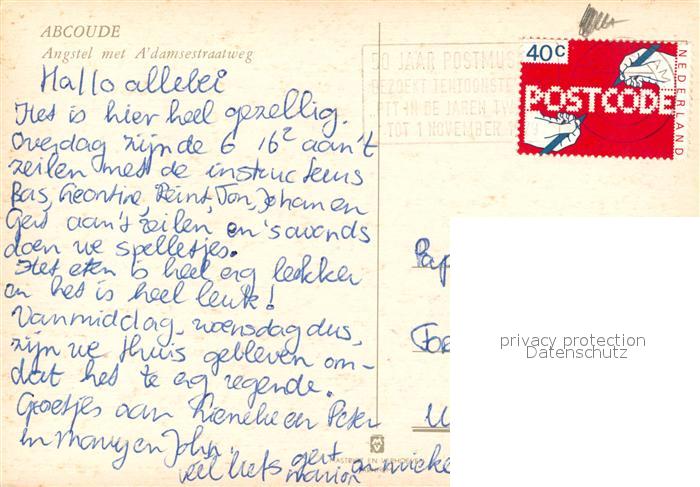 ABCOUDE
Angstel met A'damsestraatweg
Hallo allebei
Het is hier heel gezellig.
Overdag zijn de 6 16² aan't
zeilen met de instructeurs
Bas, Leontine, Reint, Ton, Johan en
Gert aan't zeilen en 's avonds
doen we spelletjes.
Het eten is heel erg lekker
en het is heel leuk!
Vanmiddag, woensdag dus,
zijn we thuis gebleven om-
dat het te erg regende.
Groetjes aan Lieneke en Peter
en Mamy en John.
veel liefs gert
marion
50 JAAR POSTMUS
TENTOONSTE
UIT IN DE JAREN TW
TOT 1 NOVEMBER
40c
POSTCODE
NEDERLAND
Pap
privacy protection
Datenschutz